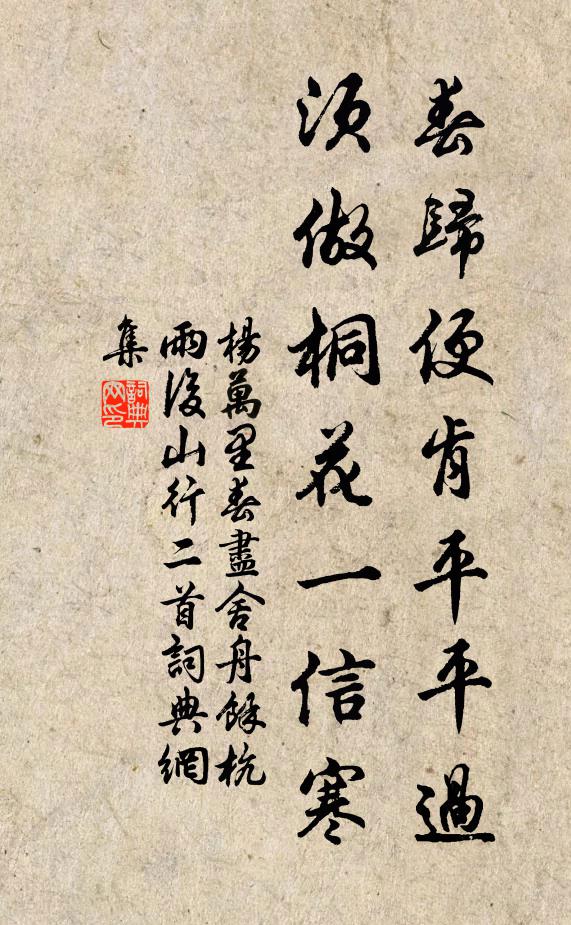 春歸便肯平平過
須做桐花一信寒
楊萬里春盡舍舟餘杭
雨後山行二首詞典網
集
詞典網印